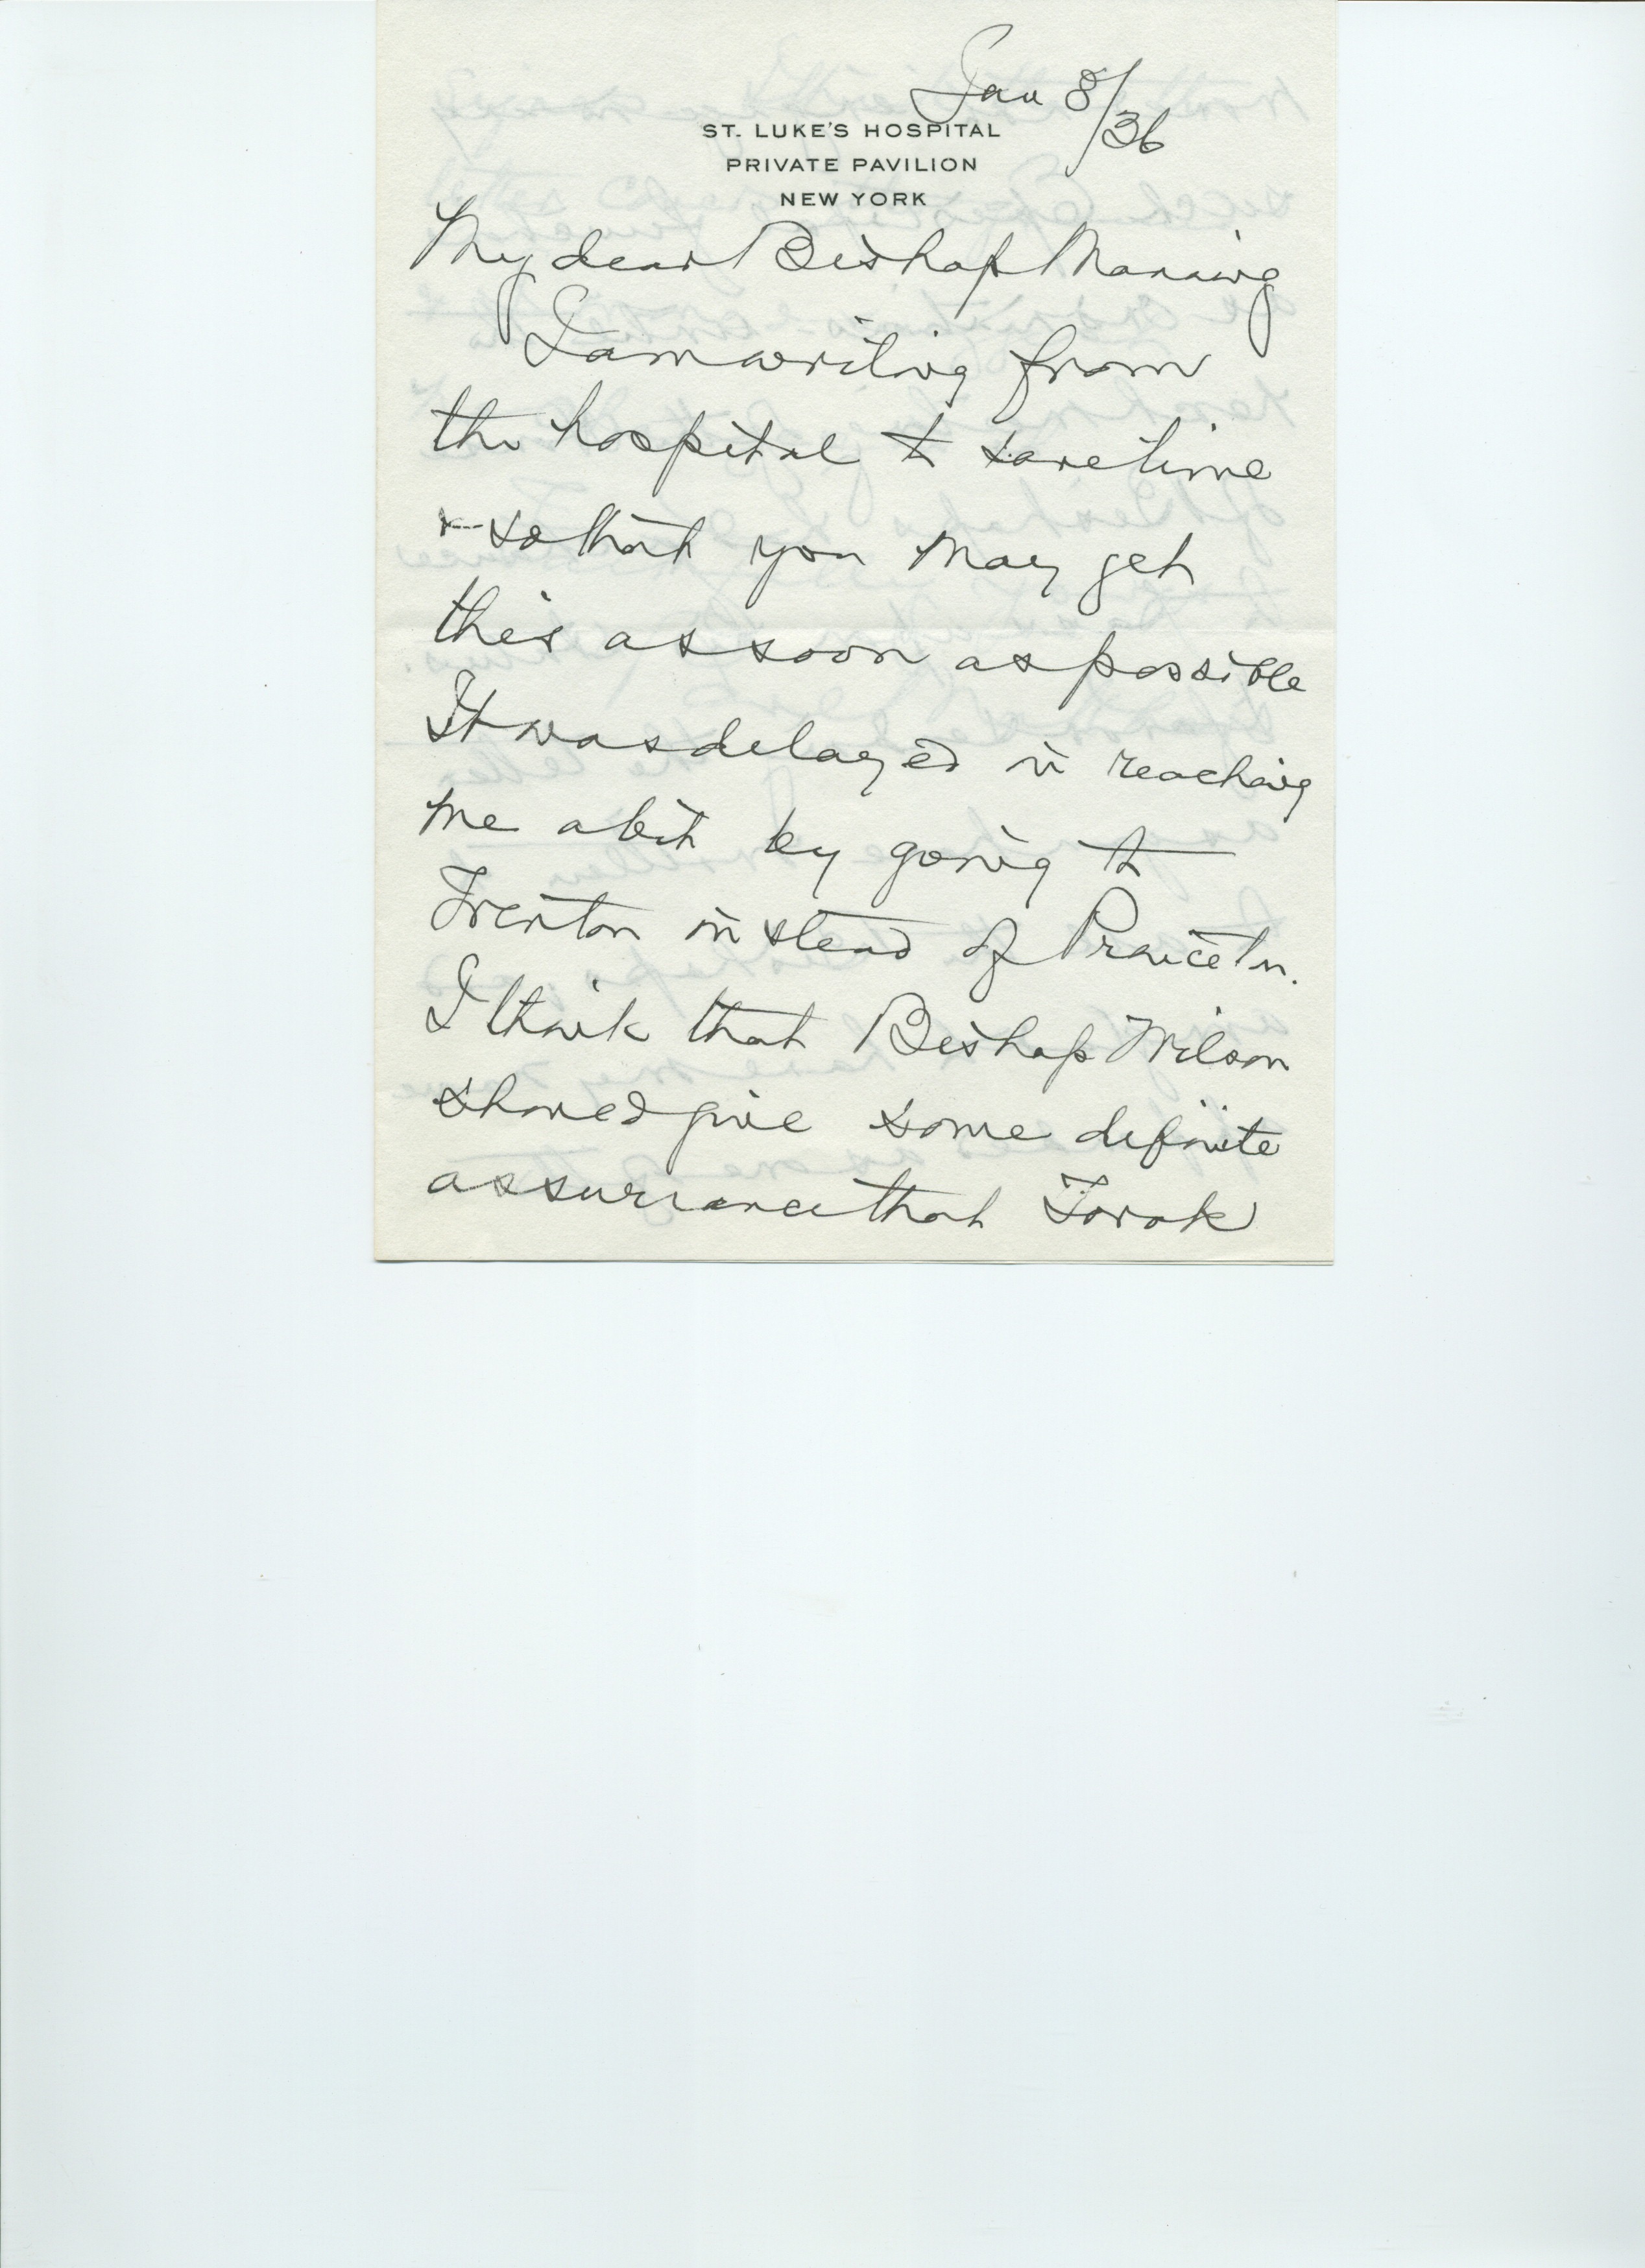 Jan 8/36
ST. LUKE'S HOSPITAL
PRIVATE PAVILION
NEW YORK
My dear Bishop Manning
I am writing from
the hospital to save time
& so that you may get
this as soon as possible
It was delayed in reaching
me a bit by going to
Trenton instead of Princeton.
I think that Bishop Wilson
should give some definite
assurance that Torok